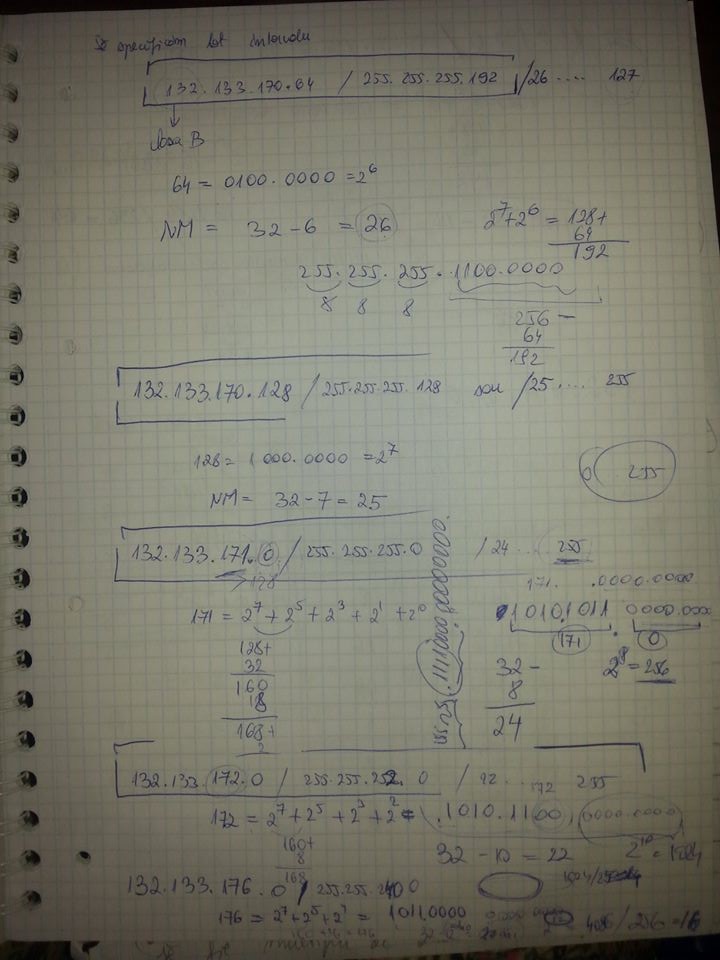 Se specificam tot intervalu
132.133.170.64 / 255.255.255.192 /26 .... 127
clasa B
64 = 0100.0000 = 2^6
NM = 32-6 = 26
2^7+2^6 = 128+
64
192
255.255.255.1100.0000
8 8 8
256 -
64
192
132.133.170.128 / 255.255.255.128 sau /25 .... 255
128 = 1000.0000 = 2^7
0 255
NM = 32-7 = 25
132.133.171.0 / 255.255.255.0 /24 ... 255
128
171. .0000.0000
171 = 2^7 + 2^5 + 2^3 + 2^1 + 2^0
1010.1011 . 0000.0000
171 0
128+
32
160
8
168+
2
32 -
8
24
2^8 = 256
132.133.172.0 / 255.255.252.0 /22 ... 172 255
172 = 2^7 + 2^5 + 2^3 + 2^2 = .1010.1100 0000.0000
160+
8
168
32 - 10 = 22 2^10 = 1024
132.133.176.0 / 255.255.240.0
176 = 2^7+2^5+2^4 = 1011.0000 4096/256=16